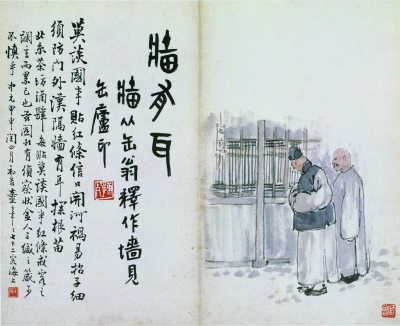 牆有耳
牆从缶翁釋作墻見
缶廬印
莫談國事貼紅條信口開河禍易招子細
須防門外漢隔牆有耳探根苗
北京茶坊酒肆每貼莫談國事紅條戒客之
言而累己也 國 有偵察 金人三緘之箴可
不慎乎 甲申閏四月初吉